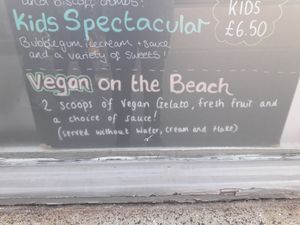 and biscoff crumbs!
Kids Spectacular
Bubblegum icecream + sauce
and a variety of sweets!
KIDS
£6.50
Vegan on the Beach
2 scoops of Vegan Gelato, fresh fruit and
a choice of sauce!
(served without Wafer, cream and Flake)